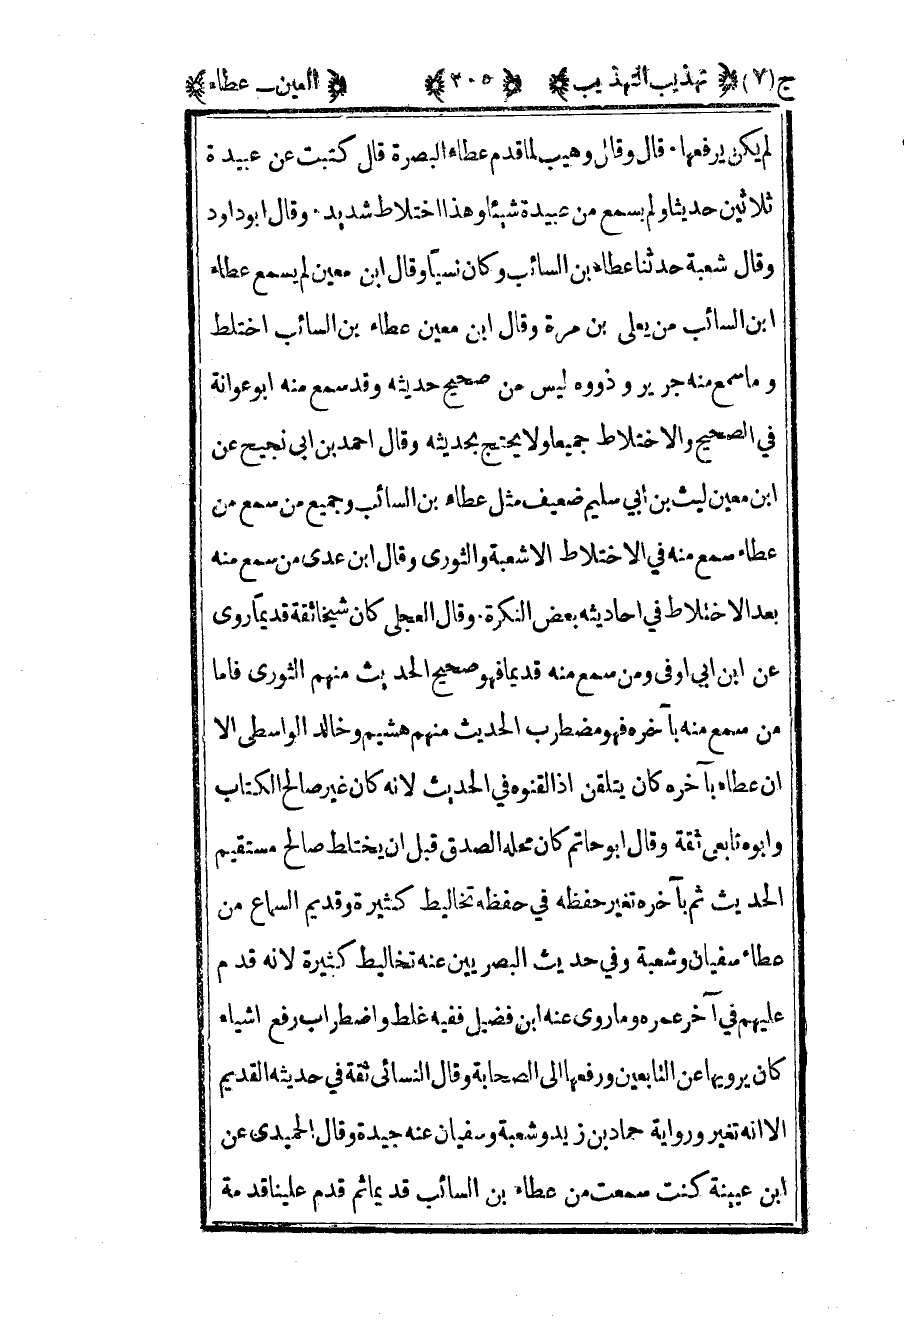 ج(٧) ﴿تهذيب التهذيب﴾ ﴿٢٠٥﴾ ﴿العين ـ عطاء﴾
لم يكن يرفعها · قال وقال وهيب لما قدم عطاء البصرة قال كتبت عن عبيدة
ثلاثين حديثا ولم يسمع من عبيدة شيئا وهذا اختلاط شديد · وقال ابو داود
وقال شعبة حدثنا عطاء بن السائب وكان نسيًا وقال ابن معين لم يسمع عطاء
ابن السائب من يعلى بن مرة وقال ابن معين عطاء بن السائب اختلط
و ما سمع منه جرير و ذووه ليس من صحيح حديثه وقد سمع منه ابو عوانة
في الصحيح والاختلاط جميعا ولا يحتج بحديثه وقال احمد بن ابى نجيح عن
ابن معين ليث بن ابي سليم ضعيف مثل عطاء بن السائب وجميع من سمع من
عطاء سمع منه في الاختلاط الا شعبة والثورى وقال ابن عدى من سمع منه
بعد الاختلاط في احاديثه بعض النكرة · وقال العجلى كان شيخا ثقة قديمًا روى
عن ابن ابي اوفى ومن سمع منه قديما فهو صحيح الحديث منهم الثورى فاما
من سمع منه بآخره فهو مضطرب الحديث منهم هشيم وخالد الواسطى الا
ان عطاء بآخره كان يتلقن اذا لقنوه في الحديث لانه كان غير صالح الكتاب
وابوه تابعى ثقة وقال ابو حاتم كان محله الصدق قبل ان يختلط صالح مستقيم
الحديث ثم بآخره تغير حفظه في حفظه تخاليط كثيرة وقديم السماع من
عطاء سفيان وشعبة وفي حديث البصريين عنه تخاليط كثيرة لانه قدم
عليهم في آخر عمره وما روى عنه ابن فضيل ففيه غلط واضطراب رفع اشياء
كان يرويها عن التابعين ورفعها الى الصحابة وقال النسائى ثقة في حديثه القديم
الا انه تغير ورواية حماد بن زيد وشعبة وسفيان عنه جيدة وقال الحميدى عن
ابن عيينة كنت سمعت من عطاء بن السائب قديما ثم قدم علينا قدمة